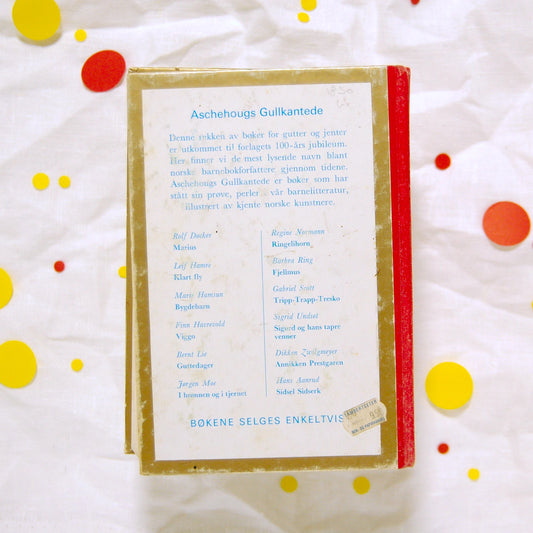 Aschehougs Gullkantede
Denne rekken av bøker for gutter og jenter
er utkommet til forlagets 100-års jubileum.
Her finner vi de mest lysende navn blant
norske barnebokforfattere gjennom tidene.
Aschehougs Gullkantede er bøker som har
stått sin prøve, perler vår barnelitteratur,
illustrert av kjente norske kunstnere.
Rolf Døcker
Marius
Leif Hamre
Klart fly
Marie Hamsun
Bygdebarn
Finn Havrevold
Viggo
Bernt Lie
Guttedager
Jørgen Moe
I brønnen og i tjernet
Regine Normann
Ringelihorn
Barbra Ring
Fjellmus
Gabriel Scott
Tripp-Trapp-Tresko
Sigrid Undset
Sigurd og hans tapre
venner
Dikken Zwilgmeyer
Annikken Prestgaren
Hans Aanrud
Sidsel Sidserk
BØKENE SELGES ENKELTVIS